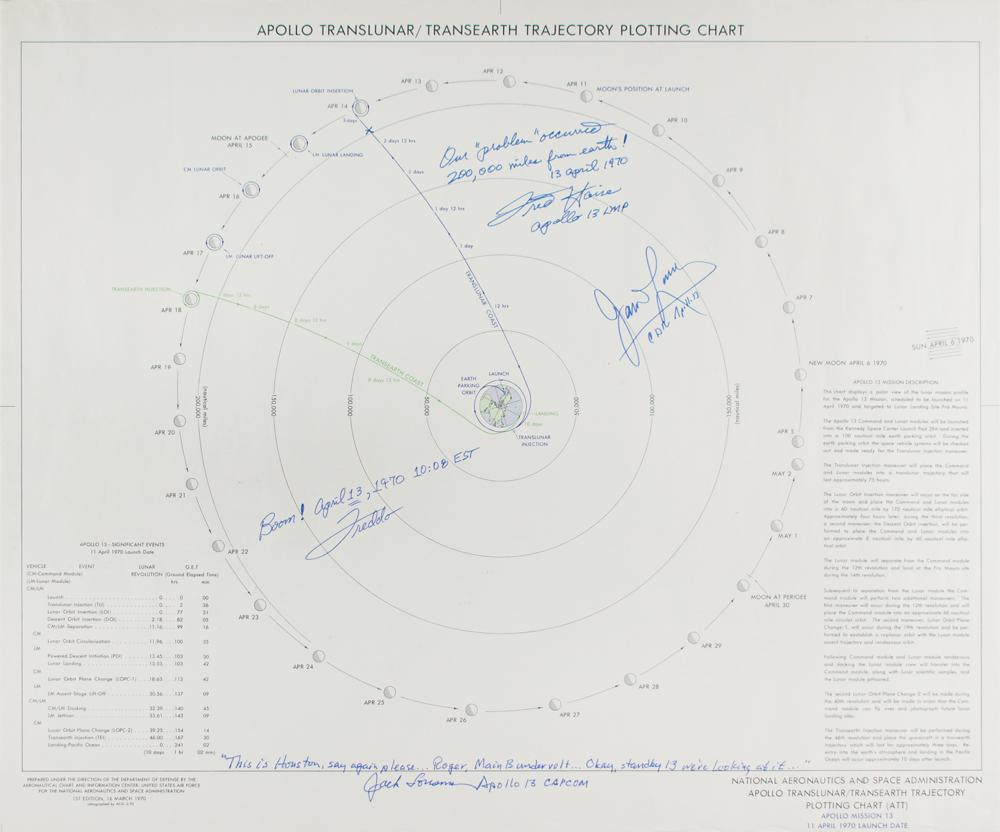 APOLLO TRANSLUNAR/TRANSEARTH TRAJECTORY PLOTTING CHART
APR 12
APR 13
APR 11
MOON'S POSITION AT LAUNCH
LUNAR ORBIT INSERTION
APR 14
3 days
APR 10
2 days 12 hrs
MOON AT APOGEE
APRIL 15
LM LUNAR LANDING
Our "problem" occurred
200,000 miles from earth!
13 april 1970
Fred Haise
apollo 13 LMP
CM LUNAR ORBIT
2 days
APR 9
APR 16
1 day 12 hrs
APR 8
APR 17
LM LUNAR LIFT-OFF
1 day
TRANSEARTH INJECTION
APR 18
8 days
8 days 12 hrs
TRANSLUNAR COAST
12 hrs
APR 7
CDR Apollo 13
SUN APRIL 6 1970
9 days
APR 19
TRANSEARTH COAST
9 days 12 hrs
NEW MOON APRIL 6 1970
LAUNCH
EARTH
PARKING
ORBIT
LANDING
10 days
TRANSLUNAR
INJECTION
200,000
(nautical miles)
150,000
100,000
50,000
50,000
100,000
150,000
(nautical miles)
APR 20
APR 5
MAY 2
APR 21
MAY 1
Boom! April 13, 1970 10:08 EST
Freddo
APR 22
MOON AT PERIGEE
APRIL 30
APR 23
APR 29
APR 24
APR 28
APR 25
APR 26
APR 27
APOLLO 13 MISSION DESCRIPTION
The chart displays a polar view of the lunar mission profile
for the Apollo 13 Mission, scheduled to be launched on 11
April 1970 and targeted to Lunar Landing Site Fra Mauro.
The Apollo 13 Command and Lunar modules will be launched
from the Kennedy Space Center Launch Pad 39A and inserted
into a 100 nautical mile earth parking orbit. During the
earth parking orbit the space vehicle systems will be checked
out and made ready for the Translunar Injection maneuver.
The Translunar Injection maneuver will place the Command
and Lunar modules into a translunar trajectory that will
last approximately 75 hours.
The Lunar Orbit Insertion maneuver will occur on the far side
of the moon and place the Command and Lunar modules
into a 60 nautical mile by 170 nautical mile elliptical orbit.
Approximately four hours later, during the third revolution,
a second maneuver, the Descent Orbit Insertion, will be per-
formed to place the Command and Lunar modules into
an approximate 8 nautical mile by 60 nautical mile ellip-
tical orbit.
The Lunar module will separate from the Command module
during the 12th revolution and land at the Fra Mauro site
during the 14th revolution.
Subsequent to separation from the Lunar module the Com-
mand module will perform two additional maneuvers. The
first maneuver will occur during the 12th revolution and will
place the Command module into an approximate 60
nautical mile circular orbit. The second maneuver, Lunar Orbit Plane
Change-1, will occur during the 19th revolution and be per-
formed to establish a coplanar orbit with the Lunar module
ascent trajectory and rendezvous orbit.
Following Command module and Lunar module rendezvous
and docking the Lunar module crew will transfer into the
Command module, along with lunar scientific samples, and
the Lunar module jettisoned.
The second Lunar Orbit Plane Change 2 will be made during
the 40th revolution and will be made in order that the Com-
mand module can fly over and photograph future lunar
landing sites.
The Transearth Injection maneuver will be performed during
the 46th revolution and place the spacecraft in a transearth
trajectory which will last for approximately three days. Re-
entry into the earth's atmosphere and landing in the Pacific
Ocean will occur approximately 10 days after launch.
APOLLO 13 - SIGNIFICANT EVENTS
11 April 1970 Launch Date
VEHICLE EVENT LUNAR G.E.T
(CM-Command Module) REVOLUTION (Ground Elapsed Time)
(LM-Lunar Module) hrs min
CM/LM
Launch 0 0 00
Translunar Injection (TLI) 0 2 36
Lunar Orbit Insertion (LOI) 0 77 21
Descent Orbit Insertion (DOI) 2.18 82 03
CM/LM Separation 11.16 99 16
CM
Lunar Orbit Circularization 11.96 100 35
LM
Powered Descent Initiation (PDI) 13.45 103 30
Lunar Landing 13.53 103 42
CM
Lunar Orbit Plane Change (LOPC-1) 18.63 113 42
LM
LM Ascent Stage Lift-Off 30.56 137 09
CM/LM
CM/LM Docking 32.39 140 45
LM Jettison 33.61 143 09
CM
Lunar Orbit Plane Change (LOPC-2) 39.25 154 14
Transearth Injection (TEI) 46.00 167 30
Landing-Pacific Ocean 0 241 02
(10 days 1 hr 02 min)
"This is Houston, say again please... Roger, Main B undervolt... Okay, standby 13 we're looking at it..."
Jack Lousma Apollo 13 CAPCOM
PREPARED UNDER THE DIRECTION OF THE DEPARTMENT OF DEFENSE BY THE
AERONAUTICAL CHART AND INFORMATION CENTER, UNITED STATES AIR FORCE
FOR THE NATIONAL AERONAUTICS AND SPACE ADMINISTRATION
1ST EDITION, 16 MARCH 1970
NATIONAL AERONAUTICS AND SPACE ADMINISTRATION
APOLLO TRANSLUNAR/TRANSEARTH TRAJECTORY
PLOTTING CHART (ATT)
APOLLO MISSION 13
11 APRIL 1970 LAUNCH DATE